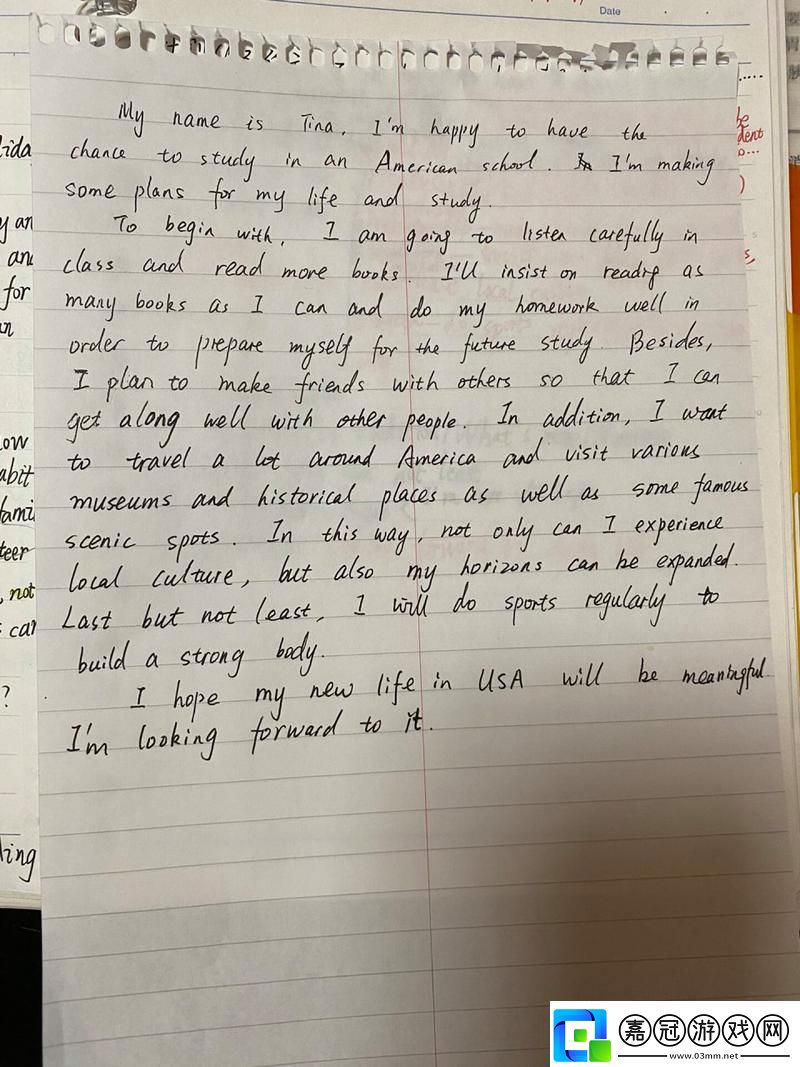 Date
My name is Tina. I'm happy to have the
chance to study in an American school. I'm making
some plans for my life and study.
To begin with, I am going to listen carefully in
class and read more books. I'll insist on readrg as
many books as I can and do my homework well in
order to prepare myself for the future study. Besides,
I plan to make friends with others so that I can
get along well with other people. In addition, I want
to travel a lot around America and visit various
museums and historical places as well as some famous
scenic spots. In this way, not only can I experience
local culture, but also my horizons can be expanded.
Last but not least, I will do sports regularly to
build a strong body.
I hope my new life in USA will be meaningful.
I'm looking forward to it.
for
teer
, not
?
嘉冠游戏网
www.03mm.net